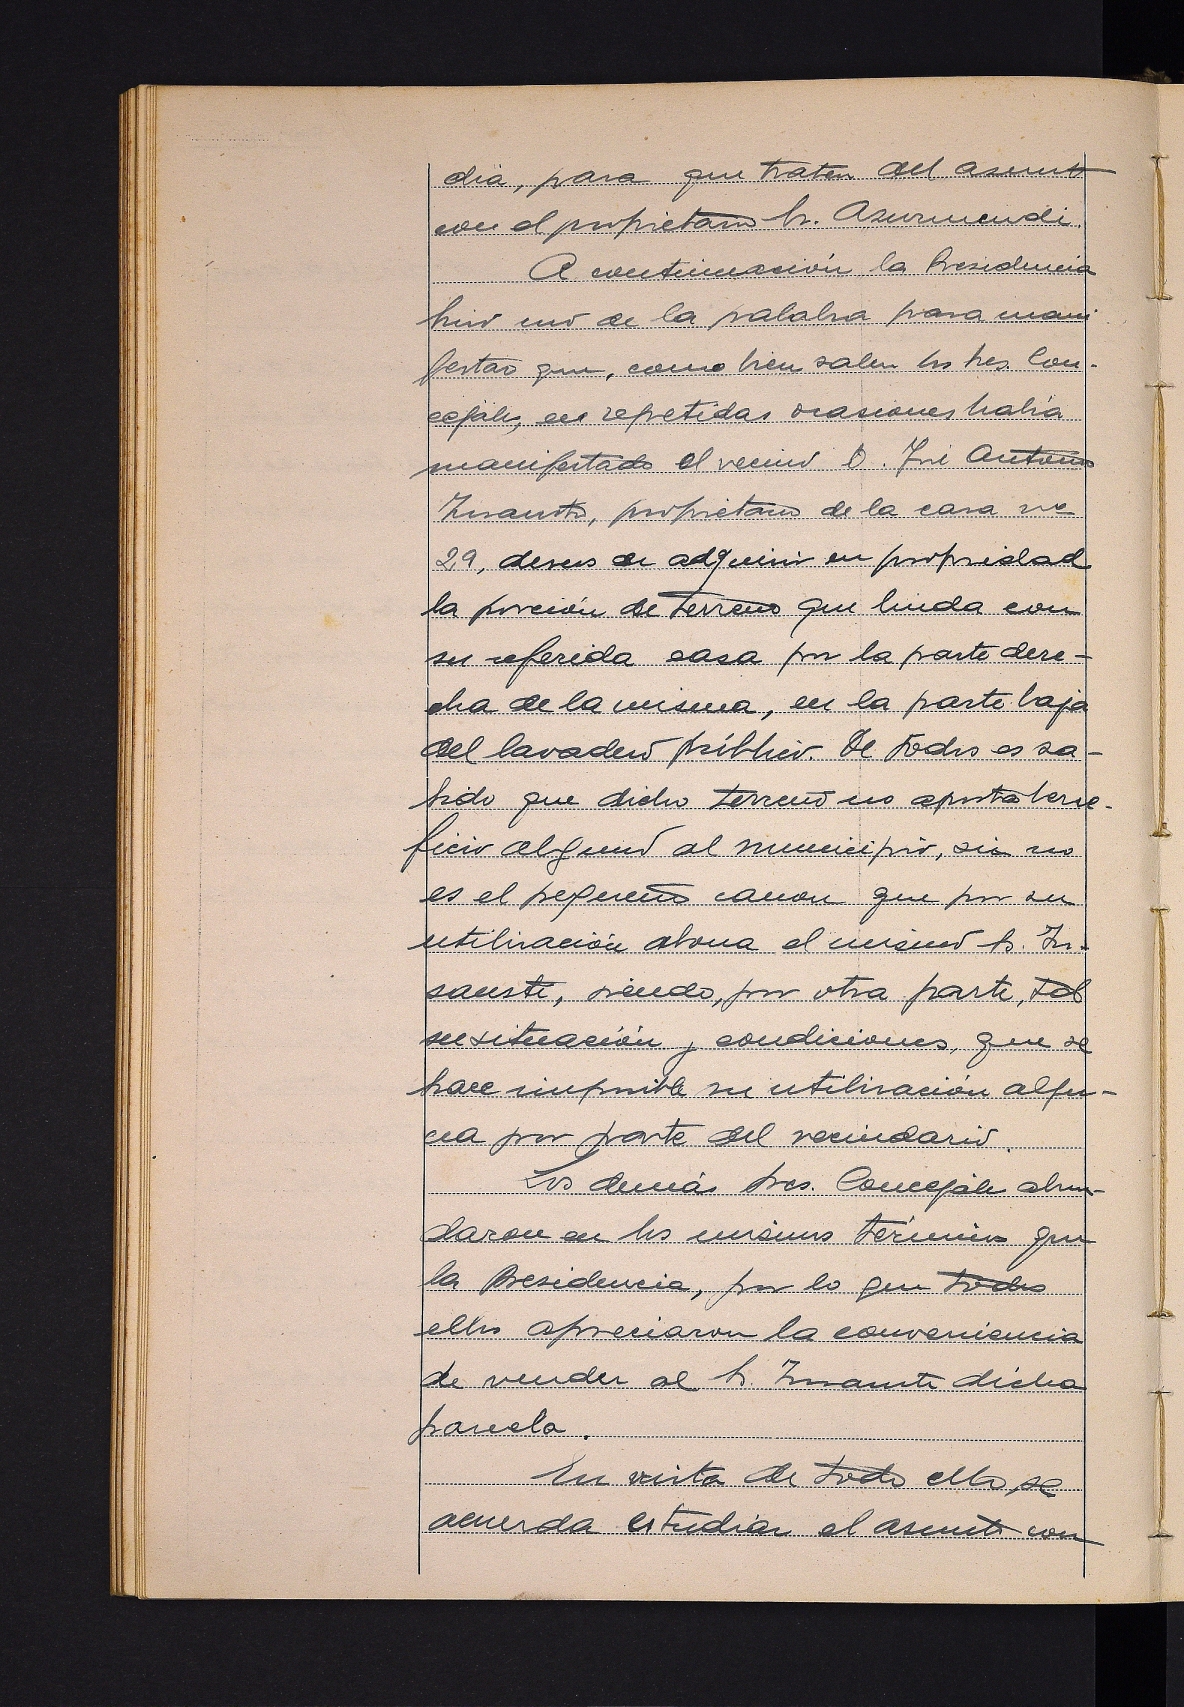 dia, para que traten del asunto
con el propietario Sr. Azurmendi.
A continuación la Presidencia
hizo uso de la palabra para mani
festar que, como bien saben los Sres. Con-
cejales, en repetidas ocasiones había
manifestado el vecino D. José Antonio
Insausti, propietario de la casa nº
29, deseos de adquirir en propiedad
la porción de terreno que linda con
su referida casa por la parte dere-
cha de la misma, en la parte baja
del lavadero público. De todos es sa-
bido que dicho terreno no aporta bene-
ficio alguno al municipio, si no
es el pequeño canon que por su
utilización abona el mismo Sr. In-
sausti, siendo, por otra parte, tal
su situación y condiciones, que se
hace imposible su utilización algu-
na por parte del vecindario.
Los demás Sres. Concejales abun-
daron en los mismos términos que
la Presidencia, por lo que todos
ellos apreciaron la conveniencia
de vender al Sr. Insausti dicha
parcela.
En vista de todo ello se
acuerda estudiar el asunto con